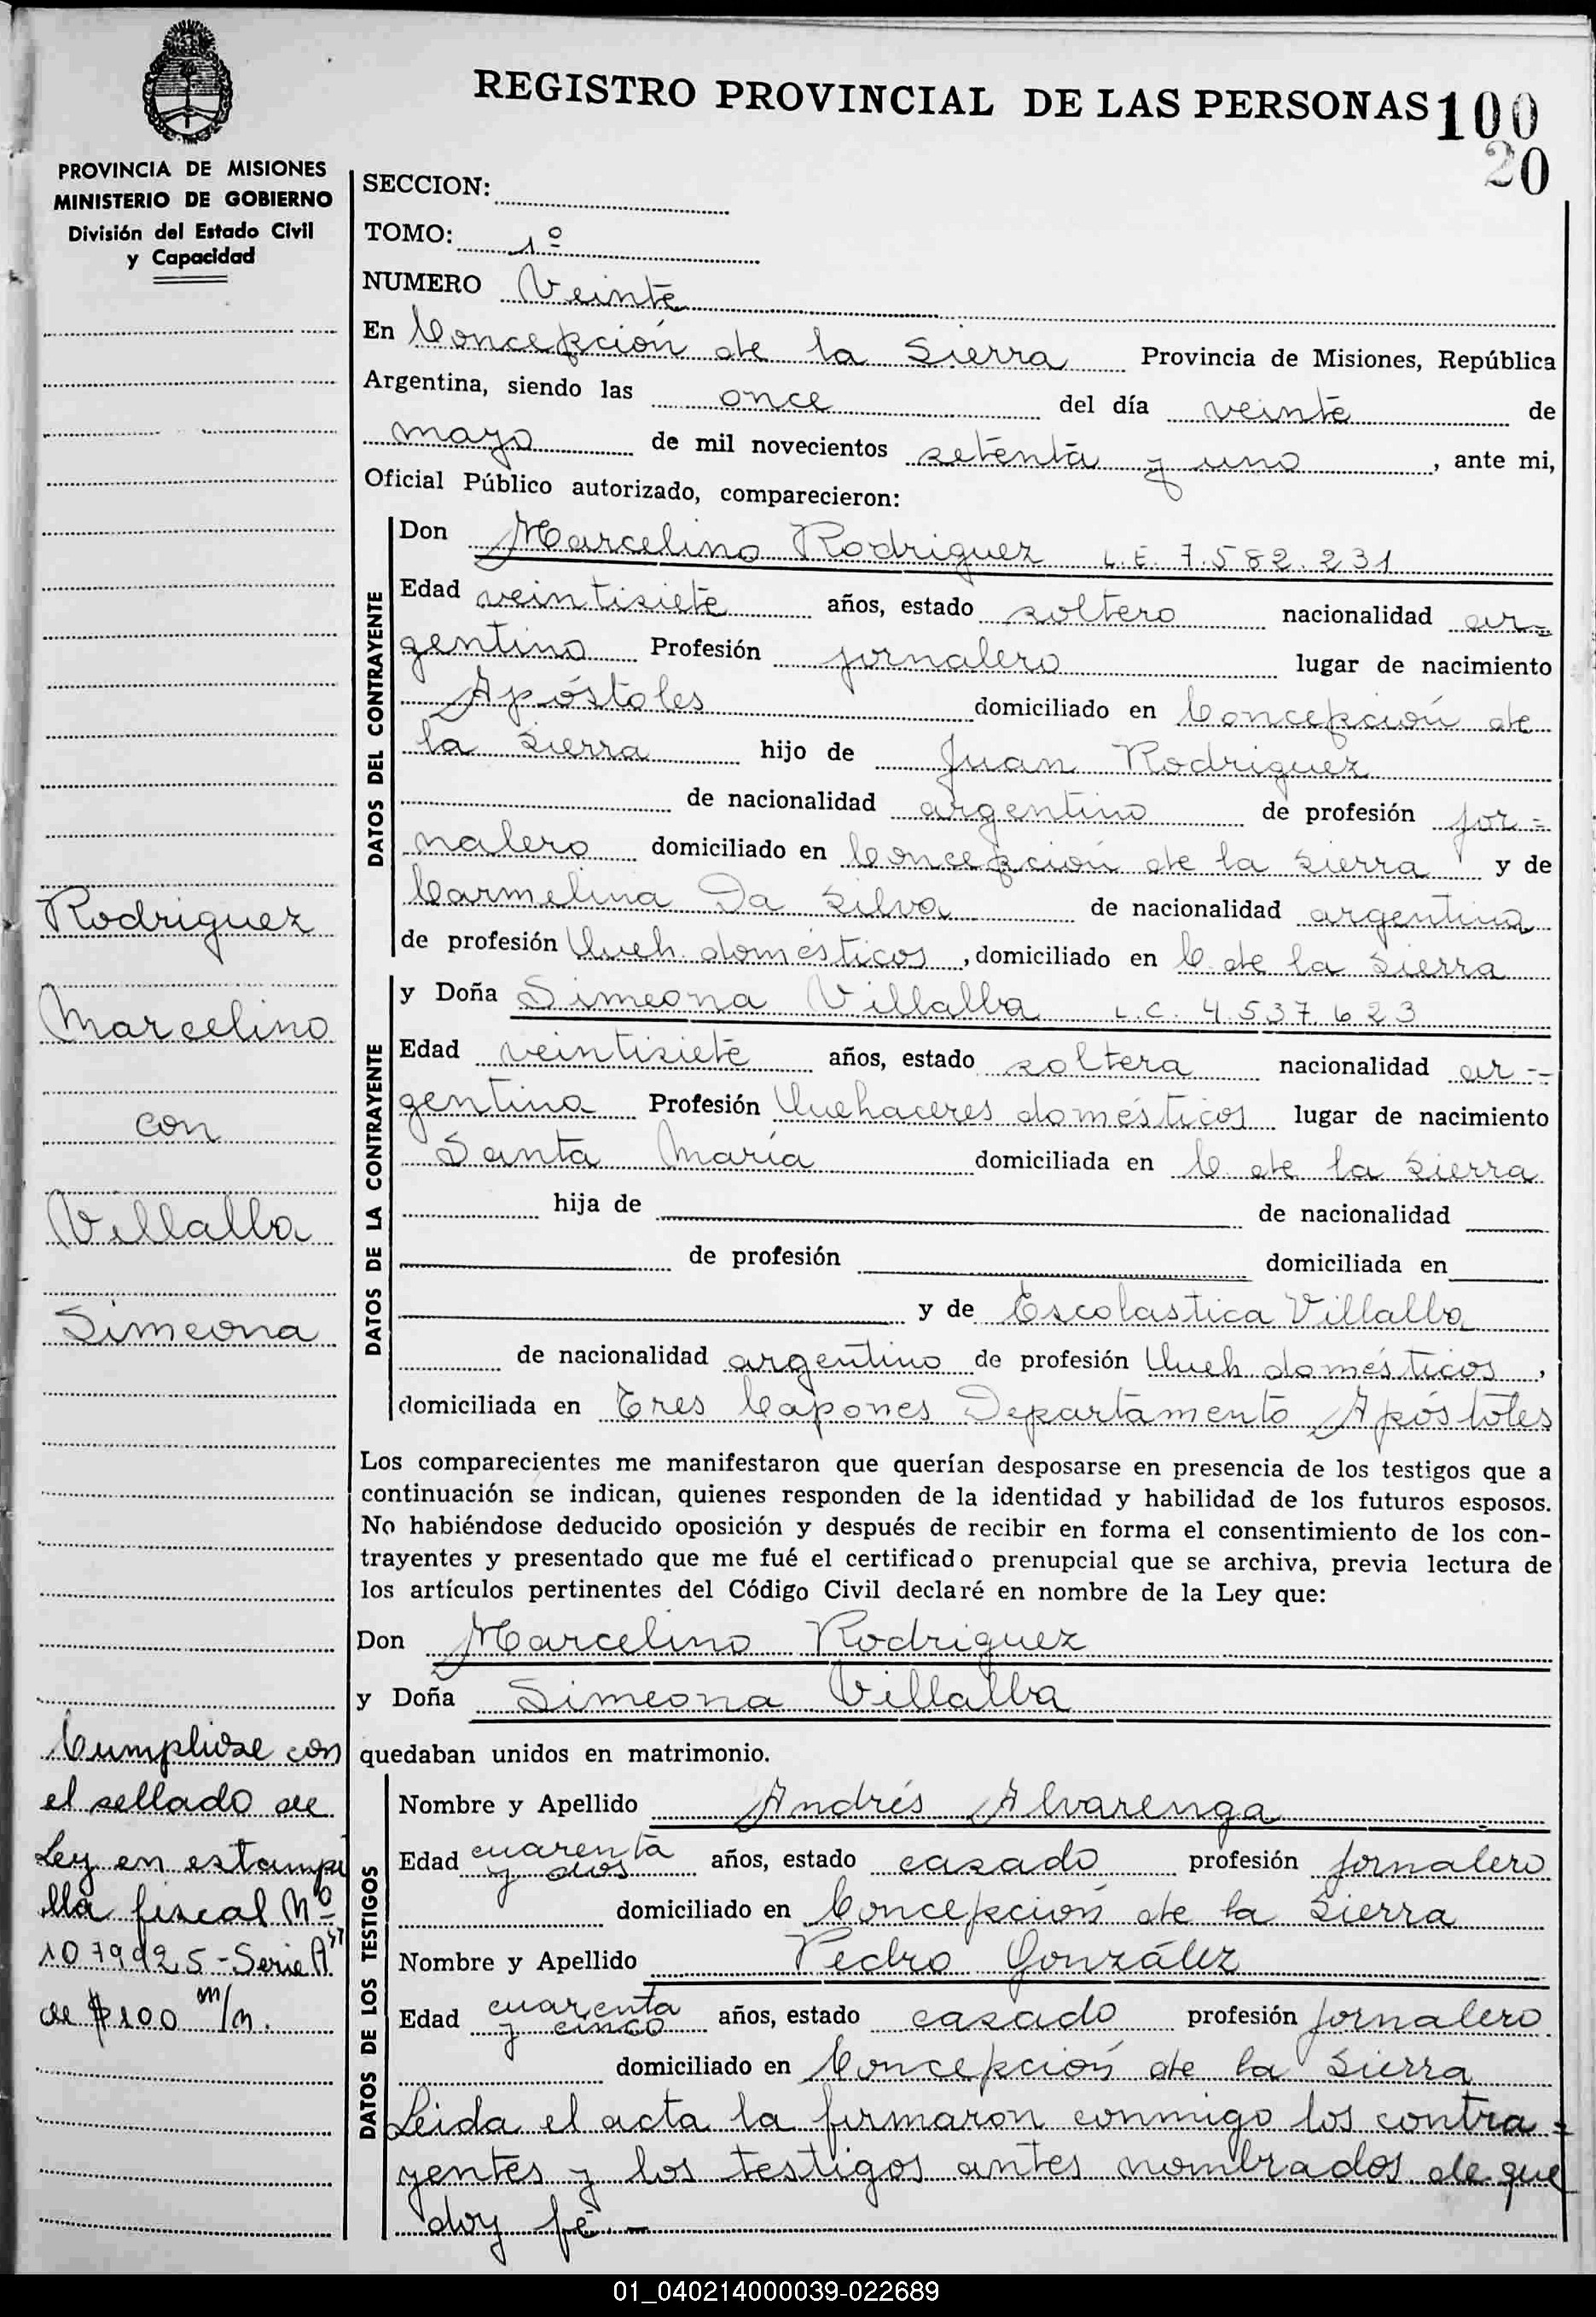 REGISTRO PROVINCIAL DE LAS PERSONAS 100
20
PROVINCIA DE MISIONES
MINISTERIO DE GOBIERNO
División del Estado Civil
y Capacidad
SECCION:
TOMO: 1º
NUMERO Veinte
En Concepción de la Sierra Provincia de Misiones, República
Argentina, siendo las once del día veinte de
mayo de mil novecientos setenta y uno, ante mi,
Oficial Público autorizado, comparecieron:
DATOS DEL CONTRAYENTE
Don Marcelino Rodriguez L.E. 7.582.231
Edad veintisiete años, estado soltero nacionalidad ar=
gentino Profesión jornalero lugar de nacimiento
Apóstoles domiciliado en Concepción de
la Sierra hijo de Juan Rodriguez
de nacionalidad argentino de profesión jor=
nalero domiciliado en Concepción de la Sierra y de
Carmelina Da Silva de nacionalidad argentina
de profesión Queh. domésticos, domiciliado en C. de la Sierra
DATOS DE LA CONTRAYENTE
y Doña Simeona Villalba L.C. 4.537.623
Edad veintisiete años, estado soltera nacionalidad ar=
gentina Profesión Quehaceres domésticos lugar de nacimiento
Santa María domiciliada en C. de la Sierra
hija de de nacionalidad
de profesión domiciliada en
y de Escolastica Villalba
de nacionalidad argentino de profesión Queh. domésticos,
domiciliada en Tres Capones Departamento Apóstoles
Los comparecientes me manifestaron que querían desposarse en presencia de los testigos que a
continuación se indican, quienes responden de la identidad y habilidad de los futuros esposos.
No habiéndose deducido oposición y después de recibir en forma el consentimiento de los con-
trayentes y presentado que me fué el certificado prenupcial que se archiva, previa lectura de
los artículos pertinentes del Código Civil declaré en nombre de la Ley que:
Don Marcelino Rodriguez
y Doña Simeona Villalba
quedaban unidos en matrimonio.
DATOS DE LOS TESTIGOS
Nombre y Apellido Andrés Alvarenga
Edad cuarenta y dos años, estado casado profesión jornalero
domiciliado en Concepción de la Sierra
Nombre y Apellido Pedro González
Edad cuarenta y cinco años, estado casado profesión jornalero
domiciliado en Concepción de la Sierra
Leida el acta la firmaron conmigo los contra=
yentes y los testigos antes nombrados de que
doy fé.-
Rodriguez
Marcelino
con
Villalba
Simeona
Cumplióse con
el sellado de
Ley en estampi
lla fiscal Nº
1079925-Serie A
de $100 m/n.
01_040214000039-022689